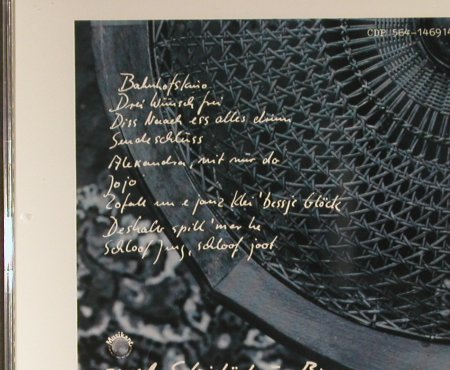 CDP 564-146914
Bahnhofskino
Drei Wünsch frei
Diss Naach ess alles drinn
Sendeschluss
Alexandra, nit nur do
Jojo
Zofall un e janz klei' bessje Glöck
Deshalv spill' mer he
Schloof Jung, schloof joot
Musikant